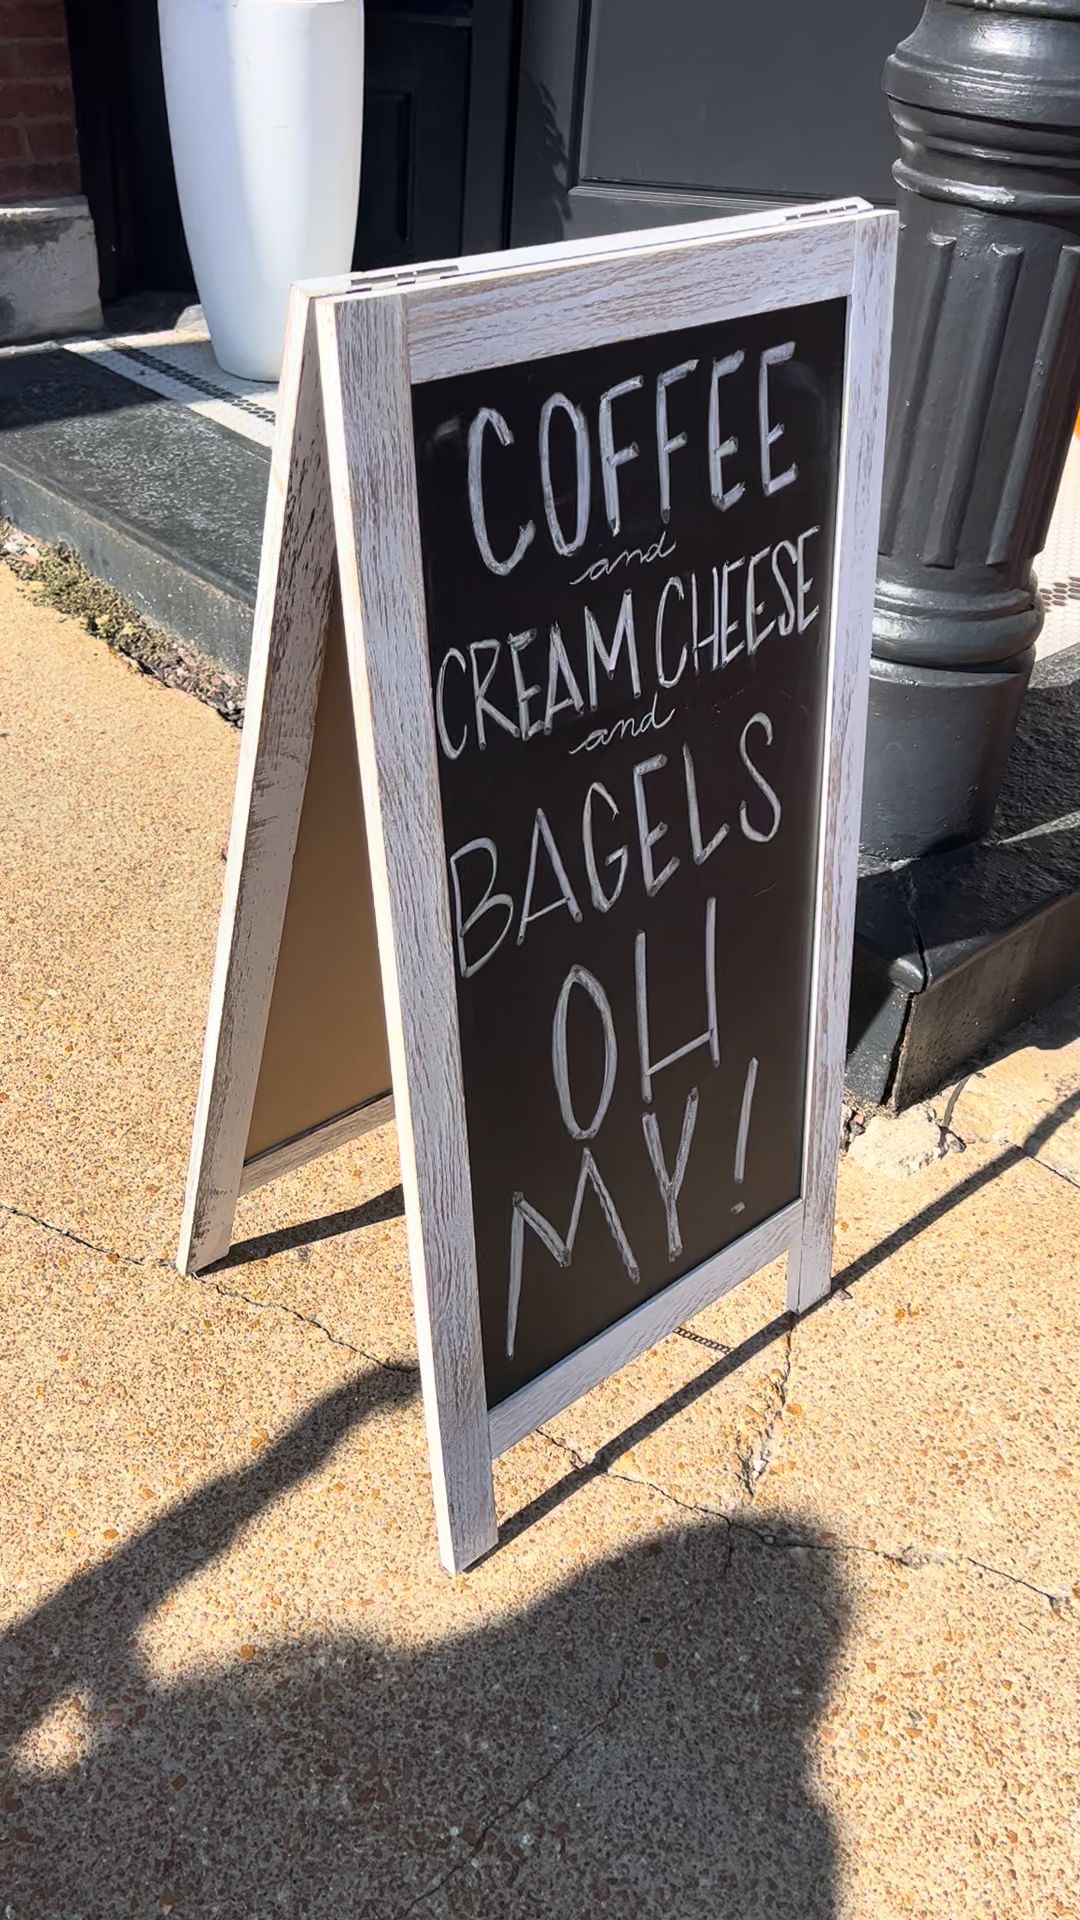 COFFEE
and
CREAM CHEESE
and
BAGELS
OH
MY!